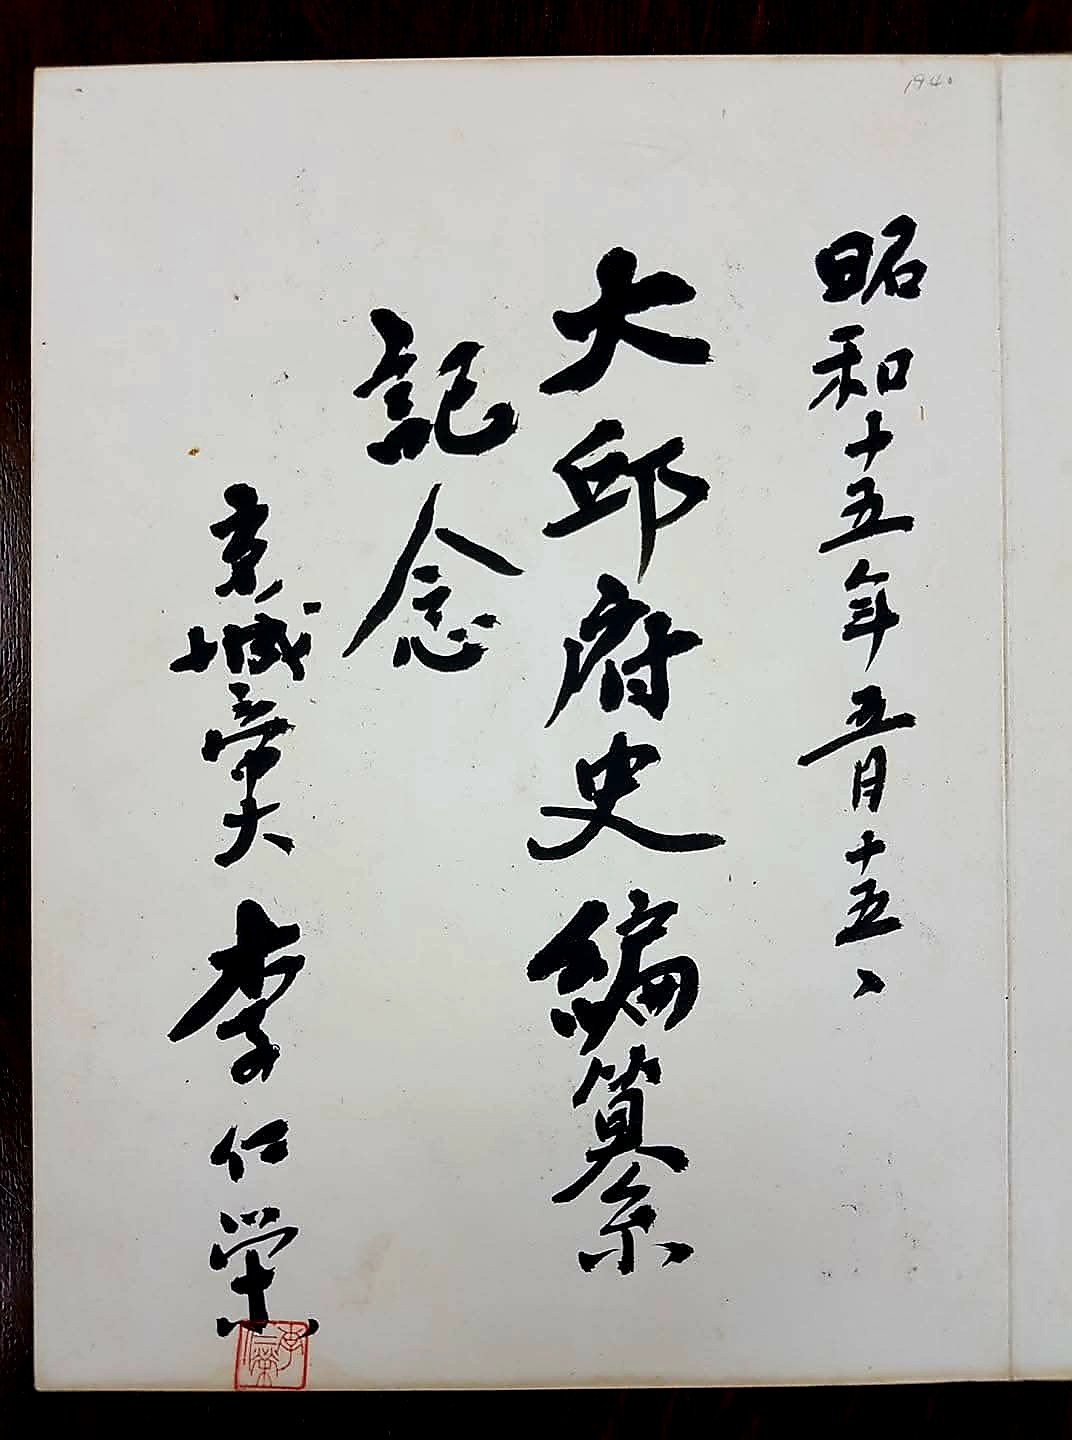 1940
昭和十五年五月十五、
大邱府史編纂
記念
京城帝大 李仁榮
李仁榮